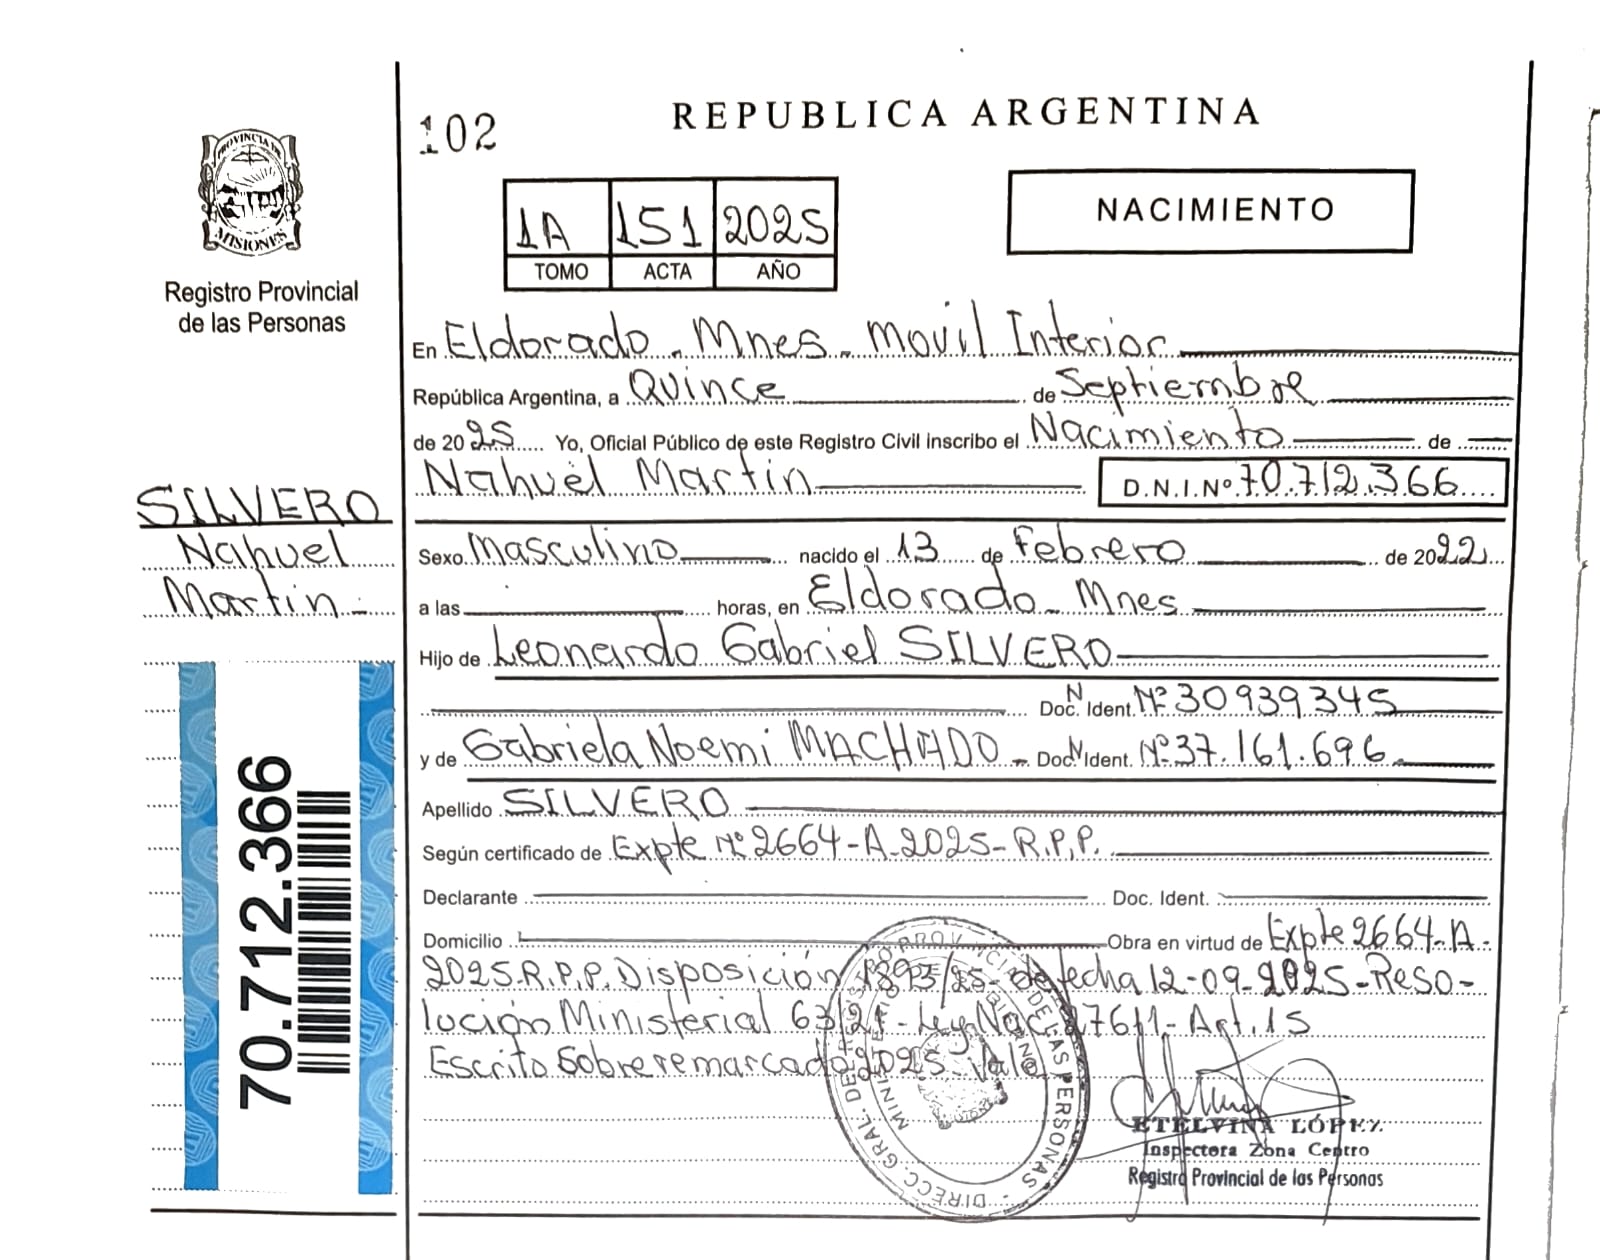 102
REPUBLICA ARGENTINA
PROVINCIA DE
MISIONES
Registro Provincial
de las Personas
1A 151 2025
TOMO ACTA AÑO
NACIMIENTO
En Eldorado - Mnes - Movil Interior
República Argentina, a Quince de Septiembre
de 2025 Yo, Oficial Público de este Registro Civil inscribo el Nacimiento de
Nahuel Martin D.N.I.Nº 70.712.366
SILVERO
Nahuel
Martin -
Sexo Masculino nacido el 13 de Febrero de 2022
a las horas, en Eldorado - Mnes
Hijo de Leonardo Gabriel SILVERO
Doc. N Ident. Nº 30939345
y de Gabriela Noemi MACHADO - Doc. N Ident. Nº 37.161.696
Apellido SILVERO
Según certificado de Expte Nº 2664-A-2025-R.P.P.
Declarante Doc. Ident.
Domicilio Obra en virtud de Expte 2664-A-
2025.R.P.P. Disposición /25- de fecha 12-09-2025-Reso-
lución Ministerial 63/21- Ley Nac. 27611- Art. 15
Escrito Sobreremarcado 2025 Vale
70.712.366
DIRECC. GRAL. DE REGISTRO PROVINCIAL DE LAS PERSONAS
ETELVINA LÓPEZ
Inspectora Zona Centro
Registro Provincial de las Personas